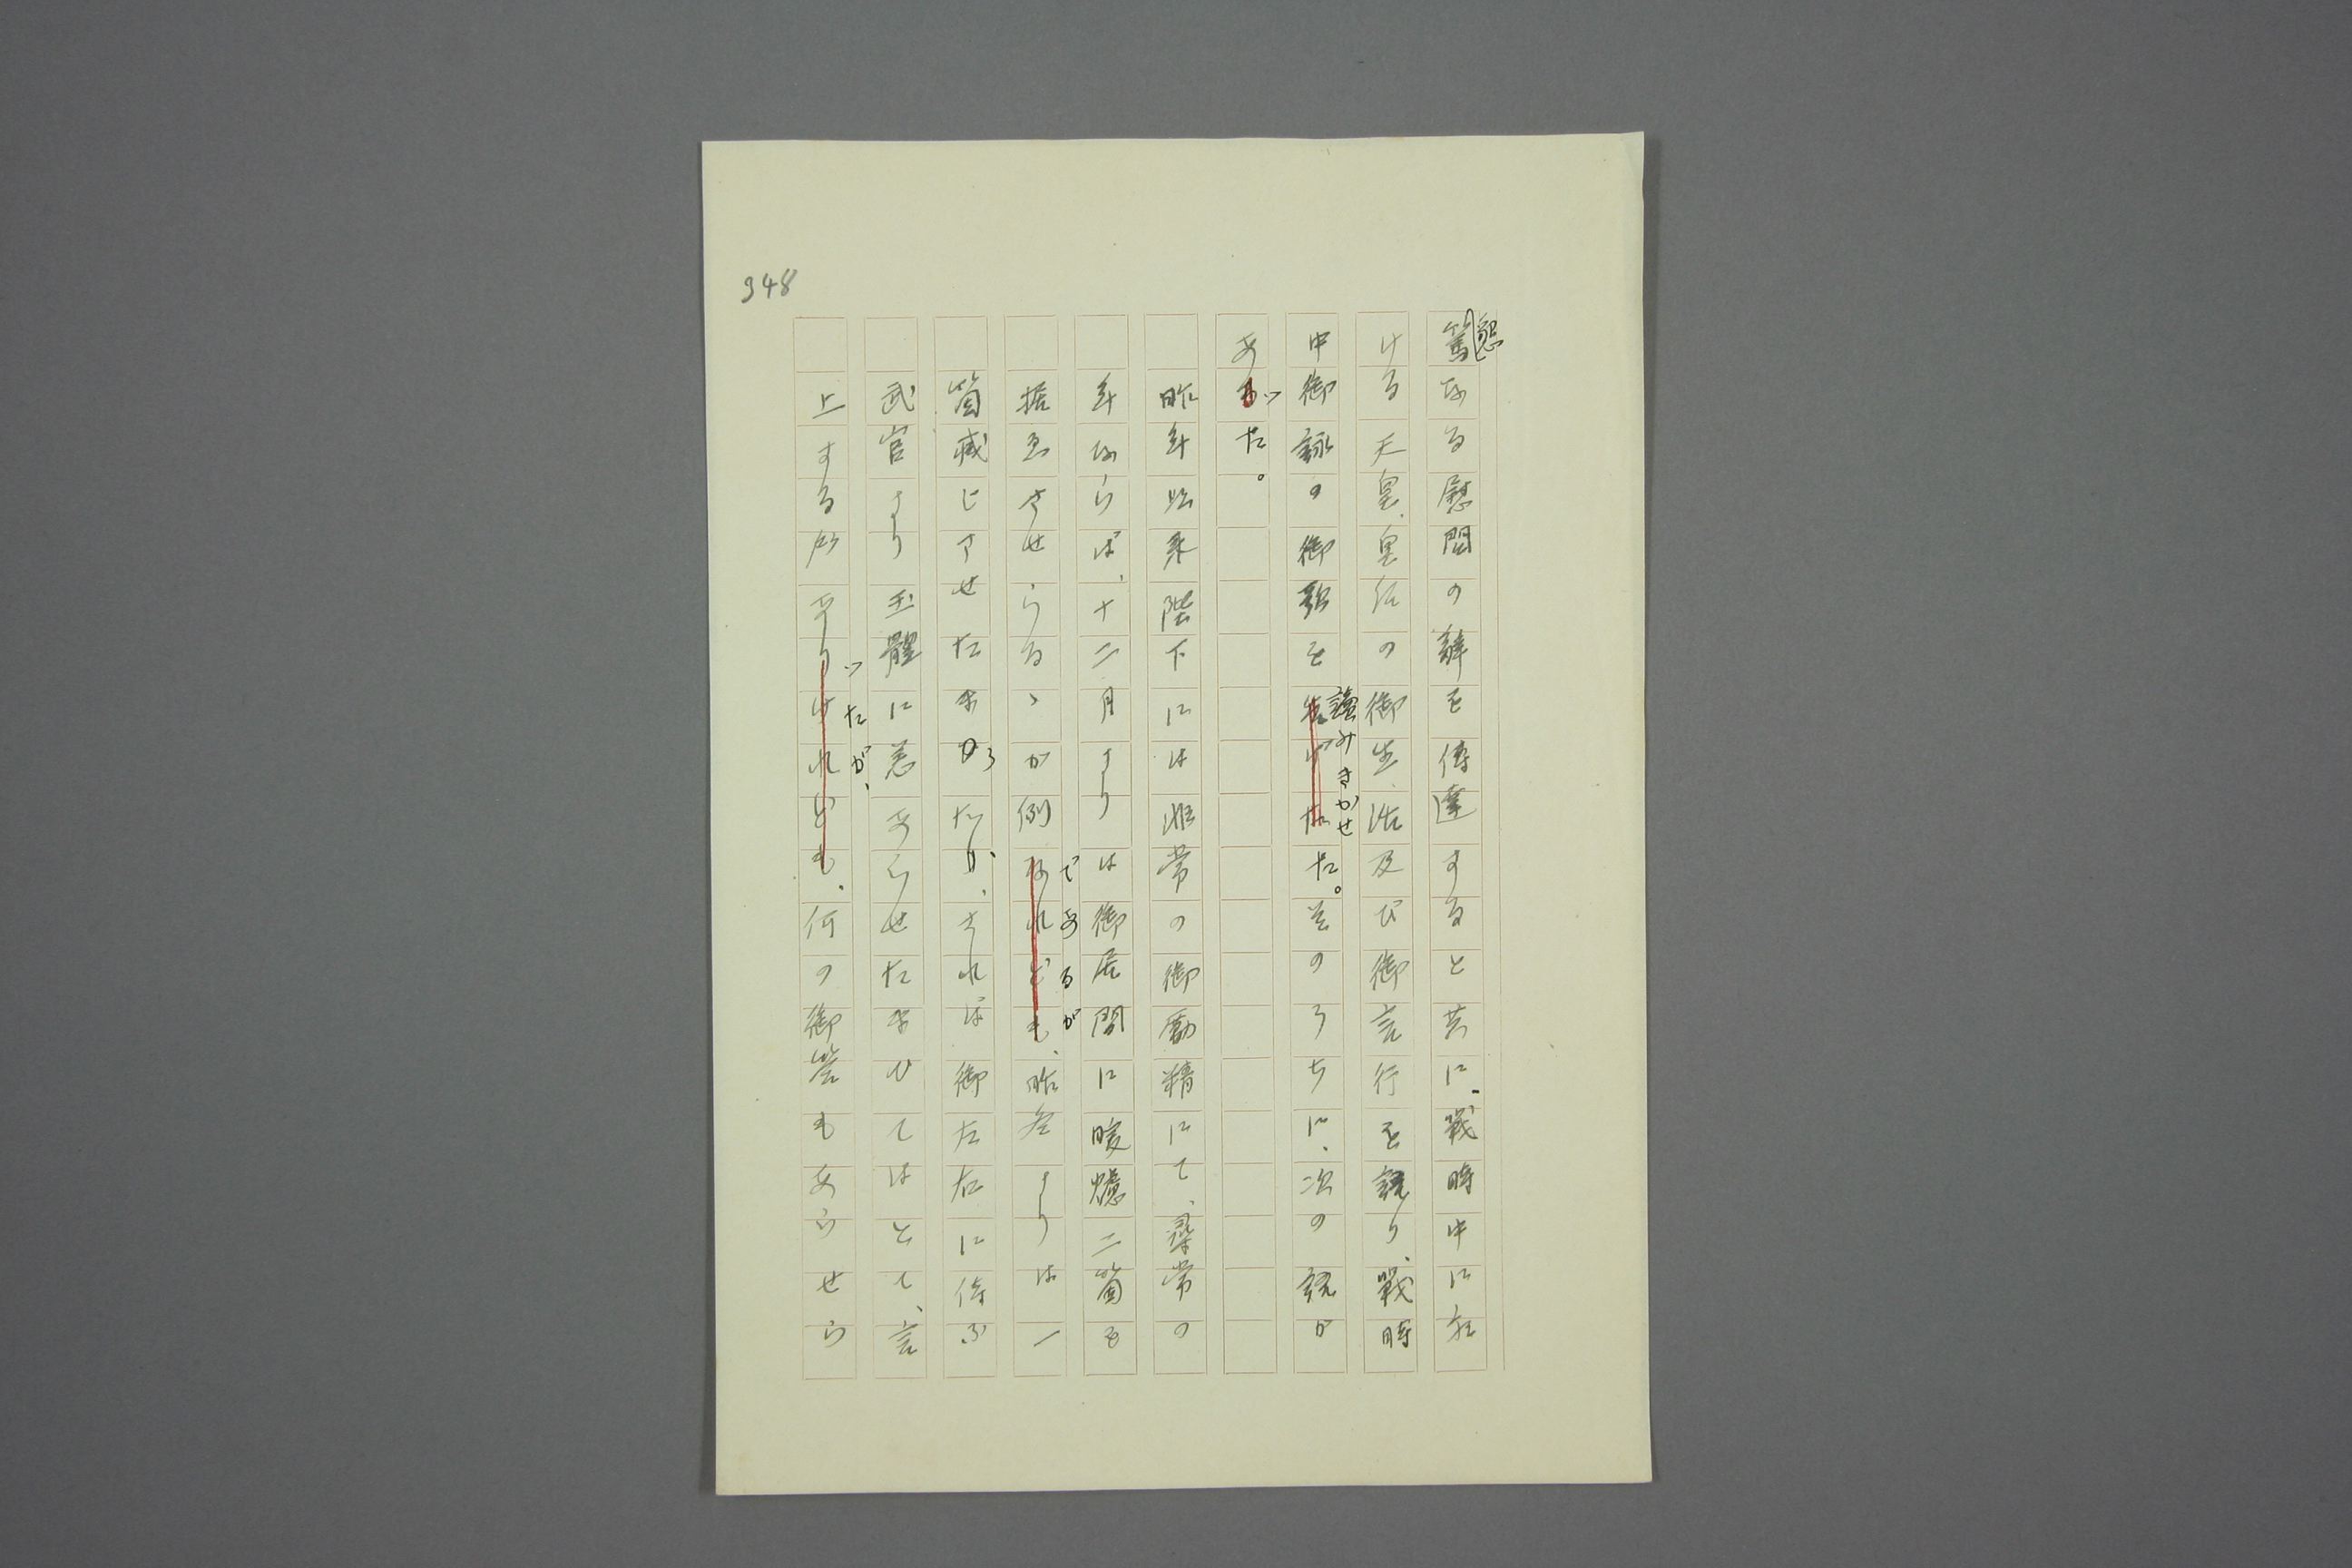 348
懇篤なる慰問の辞を傳達すると共に、戰時中に於
ける天皇、皇后の御生活及び御言行を語り、戰時
中御詠の御歌を讀みきかせた。そのうちに、次の話が
あつた。
昨年以来陛下には非常の御勵精にて、尋常の
年ならば、十二月よりは御居間に暖爐二箇を
据ゑさせらるゝが例であるが、昨冬よりは一
箇減じさせたまうたが、されば御左右に侍ふ
武官より玉體に恙あらせたまひてはとて、言
上する所あつたが、何の御答もあらせら